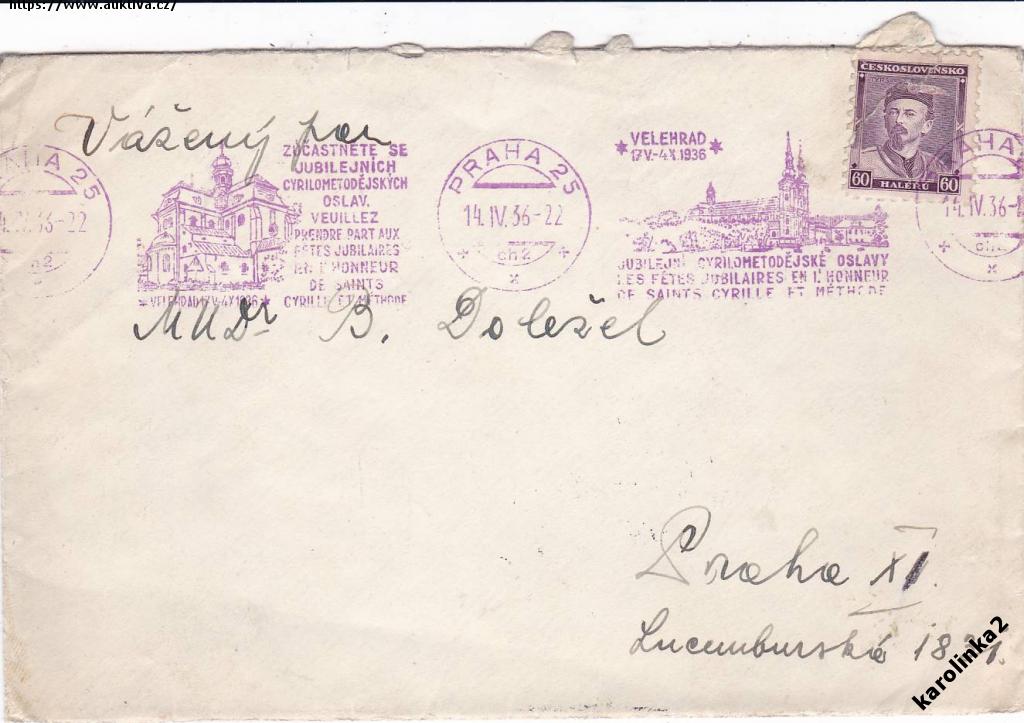 https://www.auktiva.cz/
Vážený pan
ZÚČASTNĚTE SE
JUBILEJNÍCH
CYRILOMETODĚJSKÝCH
OSLAV.
VEUILLEZ
PRENDRE PART AUX
FÊTES JUBILAIRES
EN L'HONNEUR
DE SAINTS
CYRILLE ET MÉTHODE
VELEHRAD 17.V.-4.X.1936
PRAHA 25
14.IV.36-22
ch2
PRAHA 25
14.IV.36-22
ch2
VELEHRAD
17.V.-4.X.1936
JUBILEJNÍ CYRILOMETODĚJSKÉ OSLAVY
LES FÊTES JUBILAIRES EN L'HONNEUR
DE SAINTS CYRILLE ET MÉTHODE
ČESKOSLOVENSKO
60 HALÉŘŮ 60
HA
14.IV.36-
ch2
MUDr B. Doležel
Praha XI.
Lucemburská
karolinka2